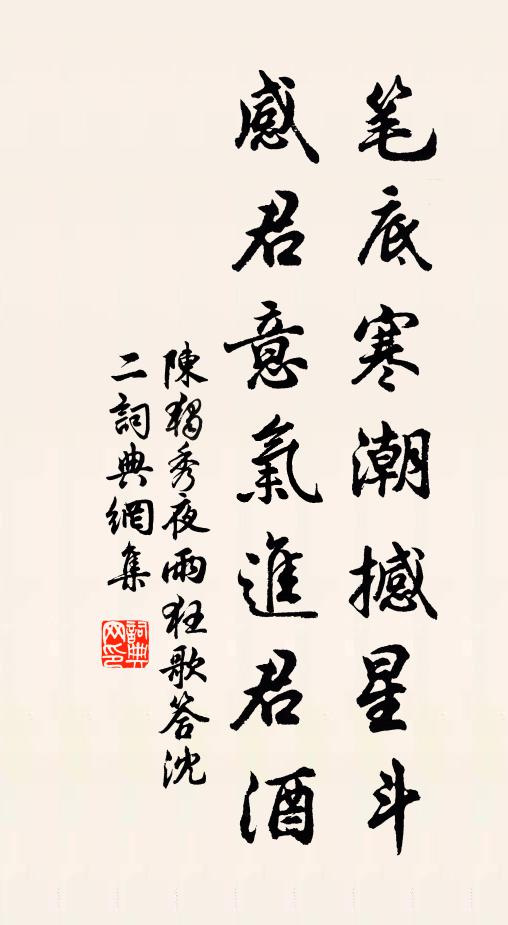 笔底寒潮撼星斗
感君意氣進君酒
陳獨秀夜雨狂歌答沈
二詞典網集
詞典
网印